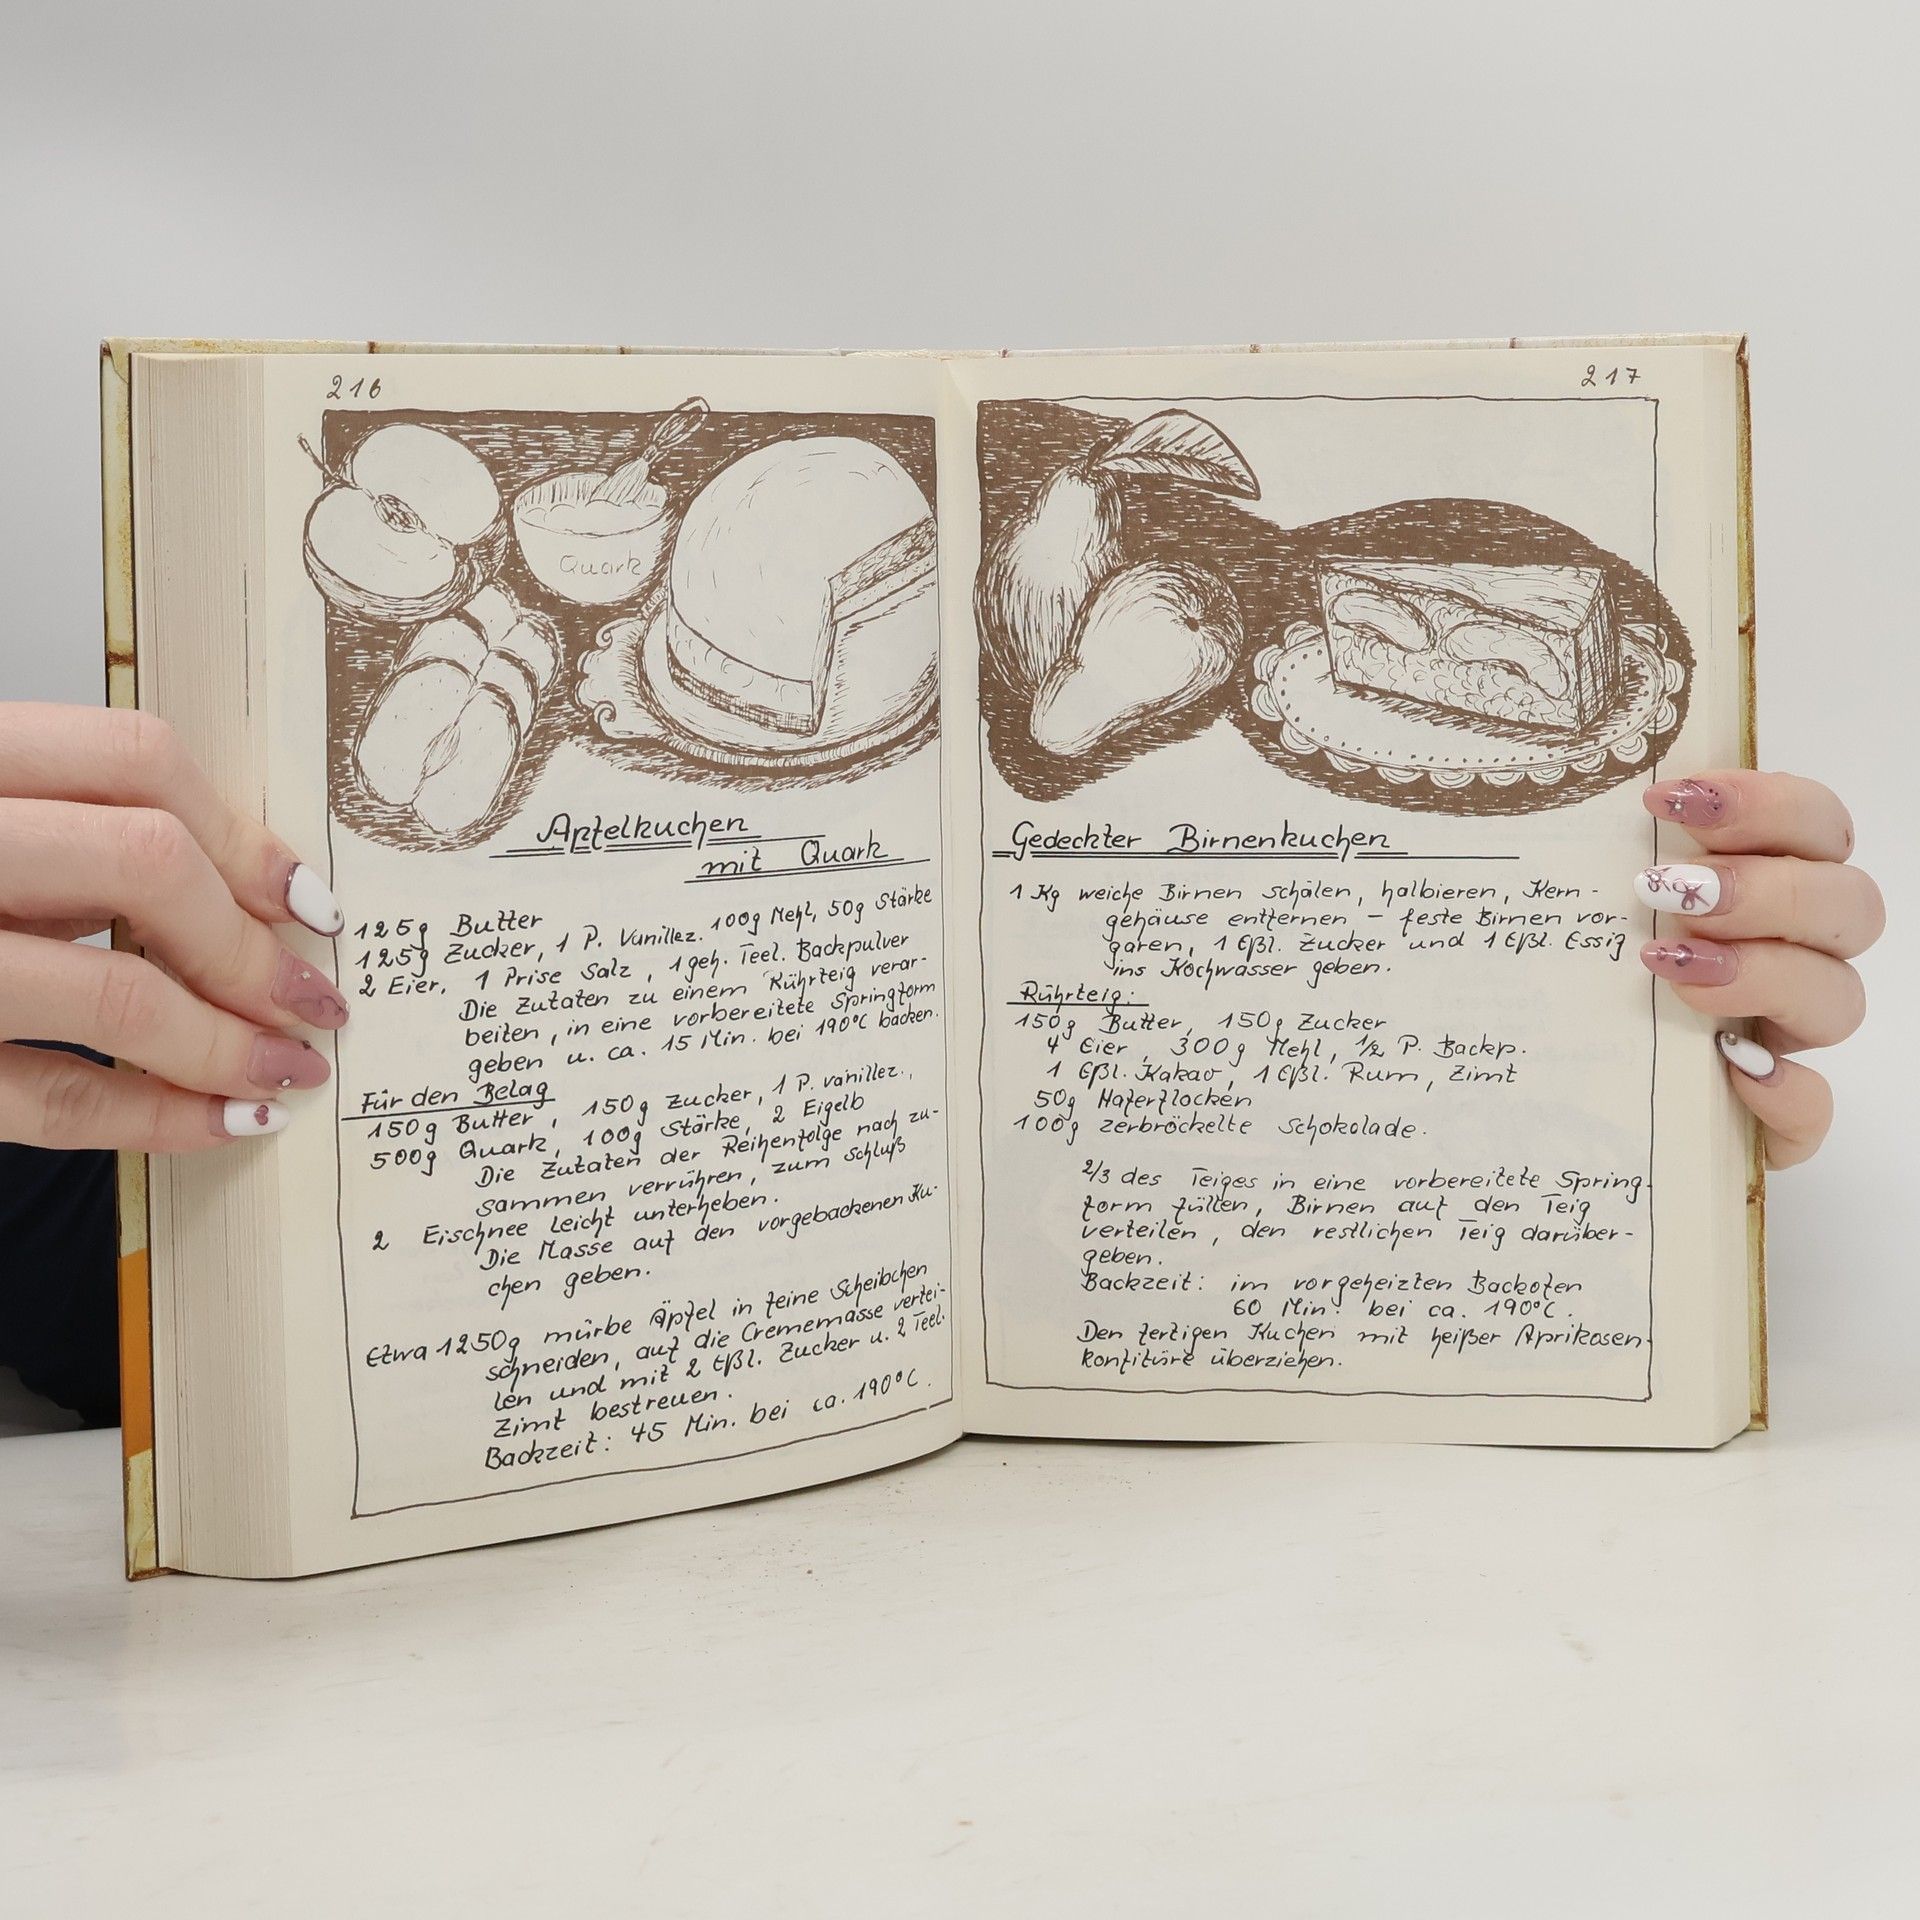 216
Quark
Apfelkuchen
mit Quark
125g Butter
125g Zucker, 1 P. Vanillez. 100g Mehl, 50g Stärke
2 Eier, 1 Prise Salz, 1 geh. Teel. Backpulver
Die Zutaten zu einem Rührteig verar-
beiten, in eine vorbereitete Springform
geben u. ca. 15 Min. bei 190°C backen.
Für den Belag
150g Butter, 150g Zucker, 1 P. Vanillez.,
500g Quark, 100g Stärke, 2 Eigelb
Die Zutaten der Reihenfolge nach zu-
sammen verrühren, zum Schluß
2 Eischnee leicht unterheben.
Die Masse auf den vorgebackenen Ku-
chen geben.
Etwa 1250g mürbe Äpfel in feine Scheibchen
schneiden, auf die Crememasse vertei-
len und mit 2 Eßl. Zucker u. 2 Teel.
Zimt bestreuen.
Backzeit: 45 Min. bei ca. 190°C.
217
Gedeckter Birnenkuchen
1 Kg weiche Birnen schälen, halbieren, Kern-
gehäuse entfernen – feste Birnen vor-
garen, 1 Eßl. Zucker und 1 Eßl. Essig
ins Kochwasser geben.
Rührteig:
150g Butter, 150g Zucker
4 Eier, 300g Mehl, 1/2 P. Backp.
1 Eßl. Kakao, 1 Eßl. Rum, Zimt
50g Haferflocken
100g zerbröckelte Schokolade.
2/3 des Teiges in eine vorbereitete Spring-
form füllen, Birnen auf den Teig
verteilen, den restlichen Teig darüber-
geben.
Backzeit: im vorgeheizten Backofen
60 Min. bei ca. 190°C.
Den fertigen Kuchen mit heißer Aprikosen-
konfitüre überziehen.